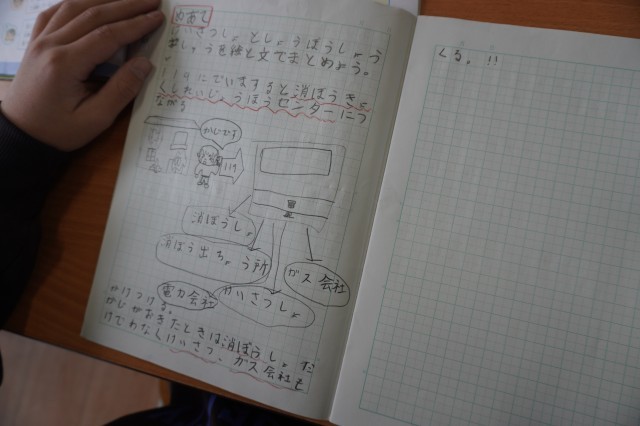 めあて
けいさつしょとしょうぼうしょう
しょうを絵と文でまとめよう。
119にでんわすると消ぼうきょ
くしれいじょうほうセンターにつ
ながる
かじです
119
消ぼうしょ
消ぼう出ちょう所
ガス会社
電力会社
けいさつしょ
かけつける。
かじがおきたときは消ぼうしょだ
けでわなくけいさつ、ガス会社も
くる。!!